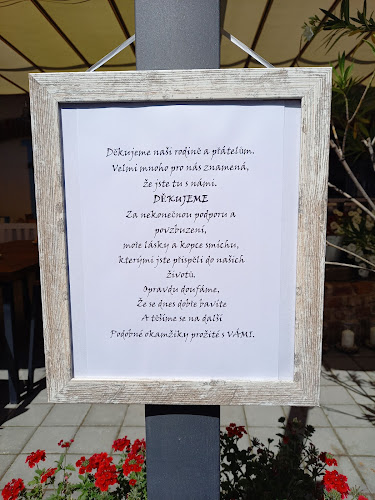 Děkujeme naší rodině a přátelům.
Velmi mnoho pro nás znamená,
že jste tu s námi.
DĚKUJEME
Za nekonečnou podporu a
povzbuzení,
moře lásky a kopce smíchu,
kterými jste přispěli do našich
životů.
Opravdu doufáme,
Že se dnes dobře bavíte
A těšíme se na další
Podobné okamžiky prožité s VÁMI.